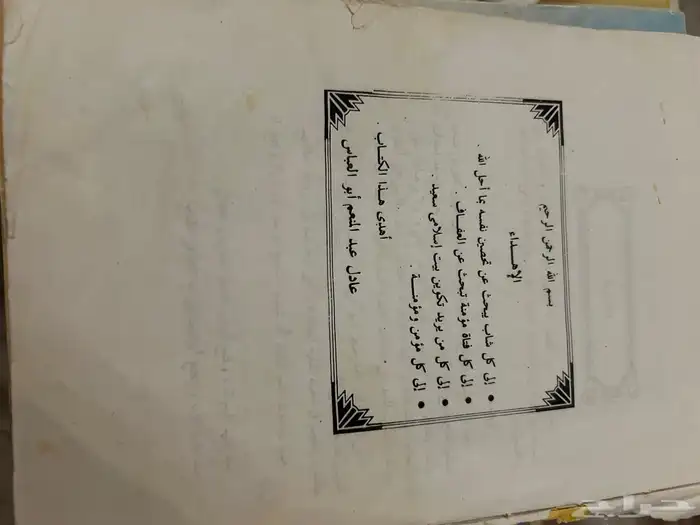 بسم الله الرحمن الرحيم
الإهــداء
• إلى كل شاب يبحث عن تحصين نفسه بما أحل الله .
• إلى كل فتاة مؤمنة تبحث عن العفــاف .
• إلى كل من يريد تكوين بيت إسلامى سعيد .
• إلى كل مؤمن ومؤمنــة .
أهدى هـذا الكتـاب .
عادل عبد المنعم أبو العباس
حراج